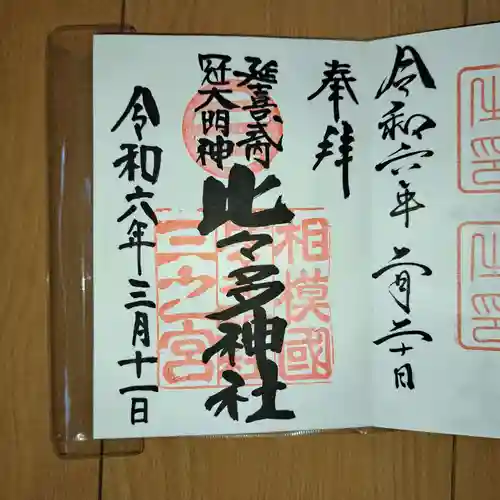 令和六年 二月二十日
奉拝
延喜式内
冠大明神
比々多神社
相模國
三之宮
令和六年三月十一日